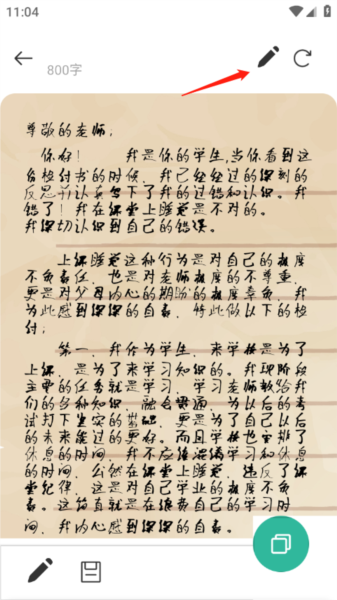 11:04
800字
尊敬的老师：
你好！ 我是你的学生，当你看到这
份检讨书的时候，我已经经过的深刻的
反思并认真写下了我的过错和认识。我
错了！我在课堂上睡觉是不对的。
我深切认识到自己的错误。
上课睡觉这种行为是对自己的极度
不负责任，也是对老师极度的不尊重，
更是对父母内心的期盼的极度辜负，我
为此感到深深的自责，特此做以下的检
讨：
第一，我作为学生，来学校是为了
上课，是为了来学习知识的。我现阶段
主要的任务就是学习，学习老师教给我
们的各种知识，融会贯通，为以后的考
试打下坚实的基础，更是为了自己以后
的未来能过的更好。而且学校也安排了
休息的时间，我不应该混淆学习和休息
的时间，公然在课堂上睡觉，违反了课
堂纪律，这是对自己学业的极度不负
责。这简直就是在浪费自己的学习时
间，我内心感到深深的自责。